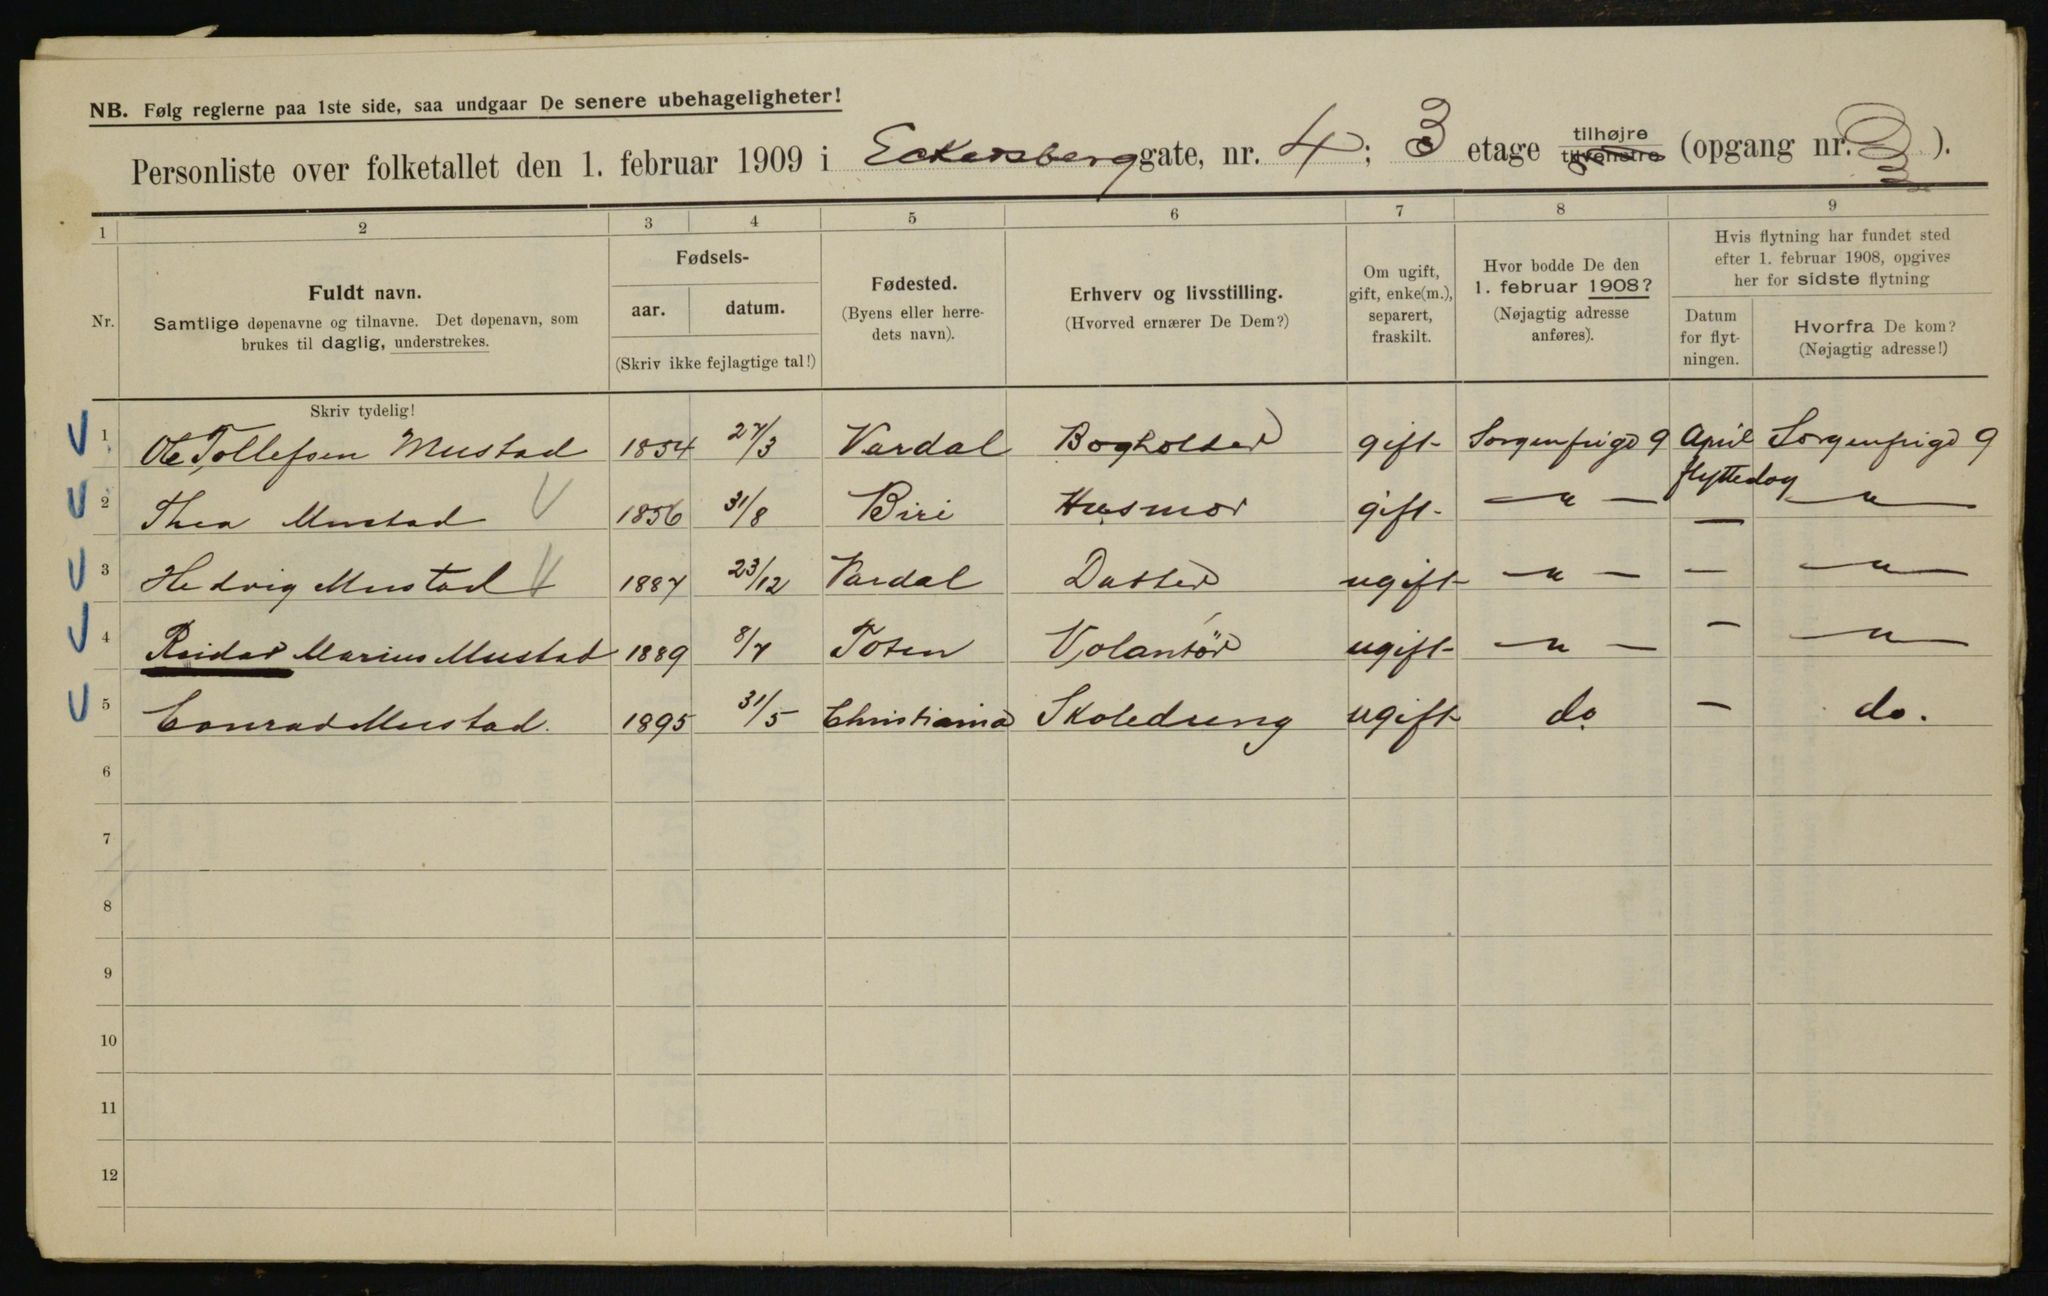 NB. Følg reglerne paa 1ste side, saa undgaar De senere ubehageligheter!
Personliste over folketallet den 1. februar 1909 i Eckersberggate, nr. 4; 3 etage tilhøjre tilvenstre (opgang nr. ).
1 2 3 4 5 6 7 8 9
Nr.
Fuldt navn.
Samtlige døpenavne og tilnavne. Det døpenavn, som
brukes til daglig, understrekes.
Skriv tydelig!
Fødsels-
aar. datum.
(Skriv ikke fejlagtige tal!)
Fødested.
(Byens eller herre-
dets navn).
Erhverv og livsstilling.
(Hvorved ernærer De Dem?)
Om ugift,
gift, enke(m.),
separert,
fraskilt.
Hvor bodde De den
1. februar 1908?
(Nøjagtig adresse
anføres).
Hvis flytning har fundet sted
efter 1. februar 1908, opgives
her for sidste flytning
Datum
for flyt-
ningen.
Hvorfra De kom?
(Nøjagtig adresse!)
1 Ole Tollefsen Mustad 1854 27/3 Vardal Bogholder gift Sorgenfrigd 9 April flyttedag Sorgenfrigd 9
2 Thea Mustad 1856 31/8 Biri Husmor gift — " — — — " —
3 Hedvig Mustad 1887 23/12 Vardal Datter ugift — " — — — " —
4 Reidar Marius Mustad 1889 8/7 Toten Volantør ugift — " — — — " —
5 Conrad Mustad. 1895 31/5 Christiania Skoledreng ugift do. — do.
6
7
8
9
10
11
12